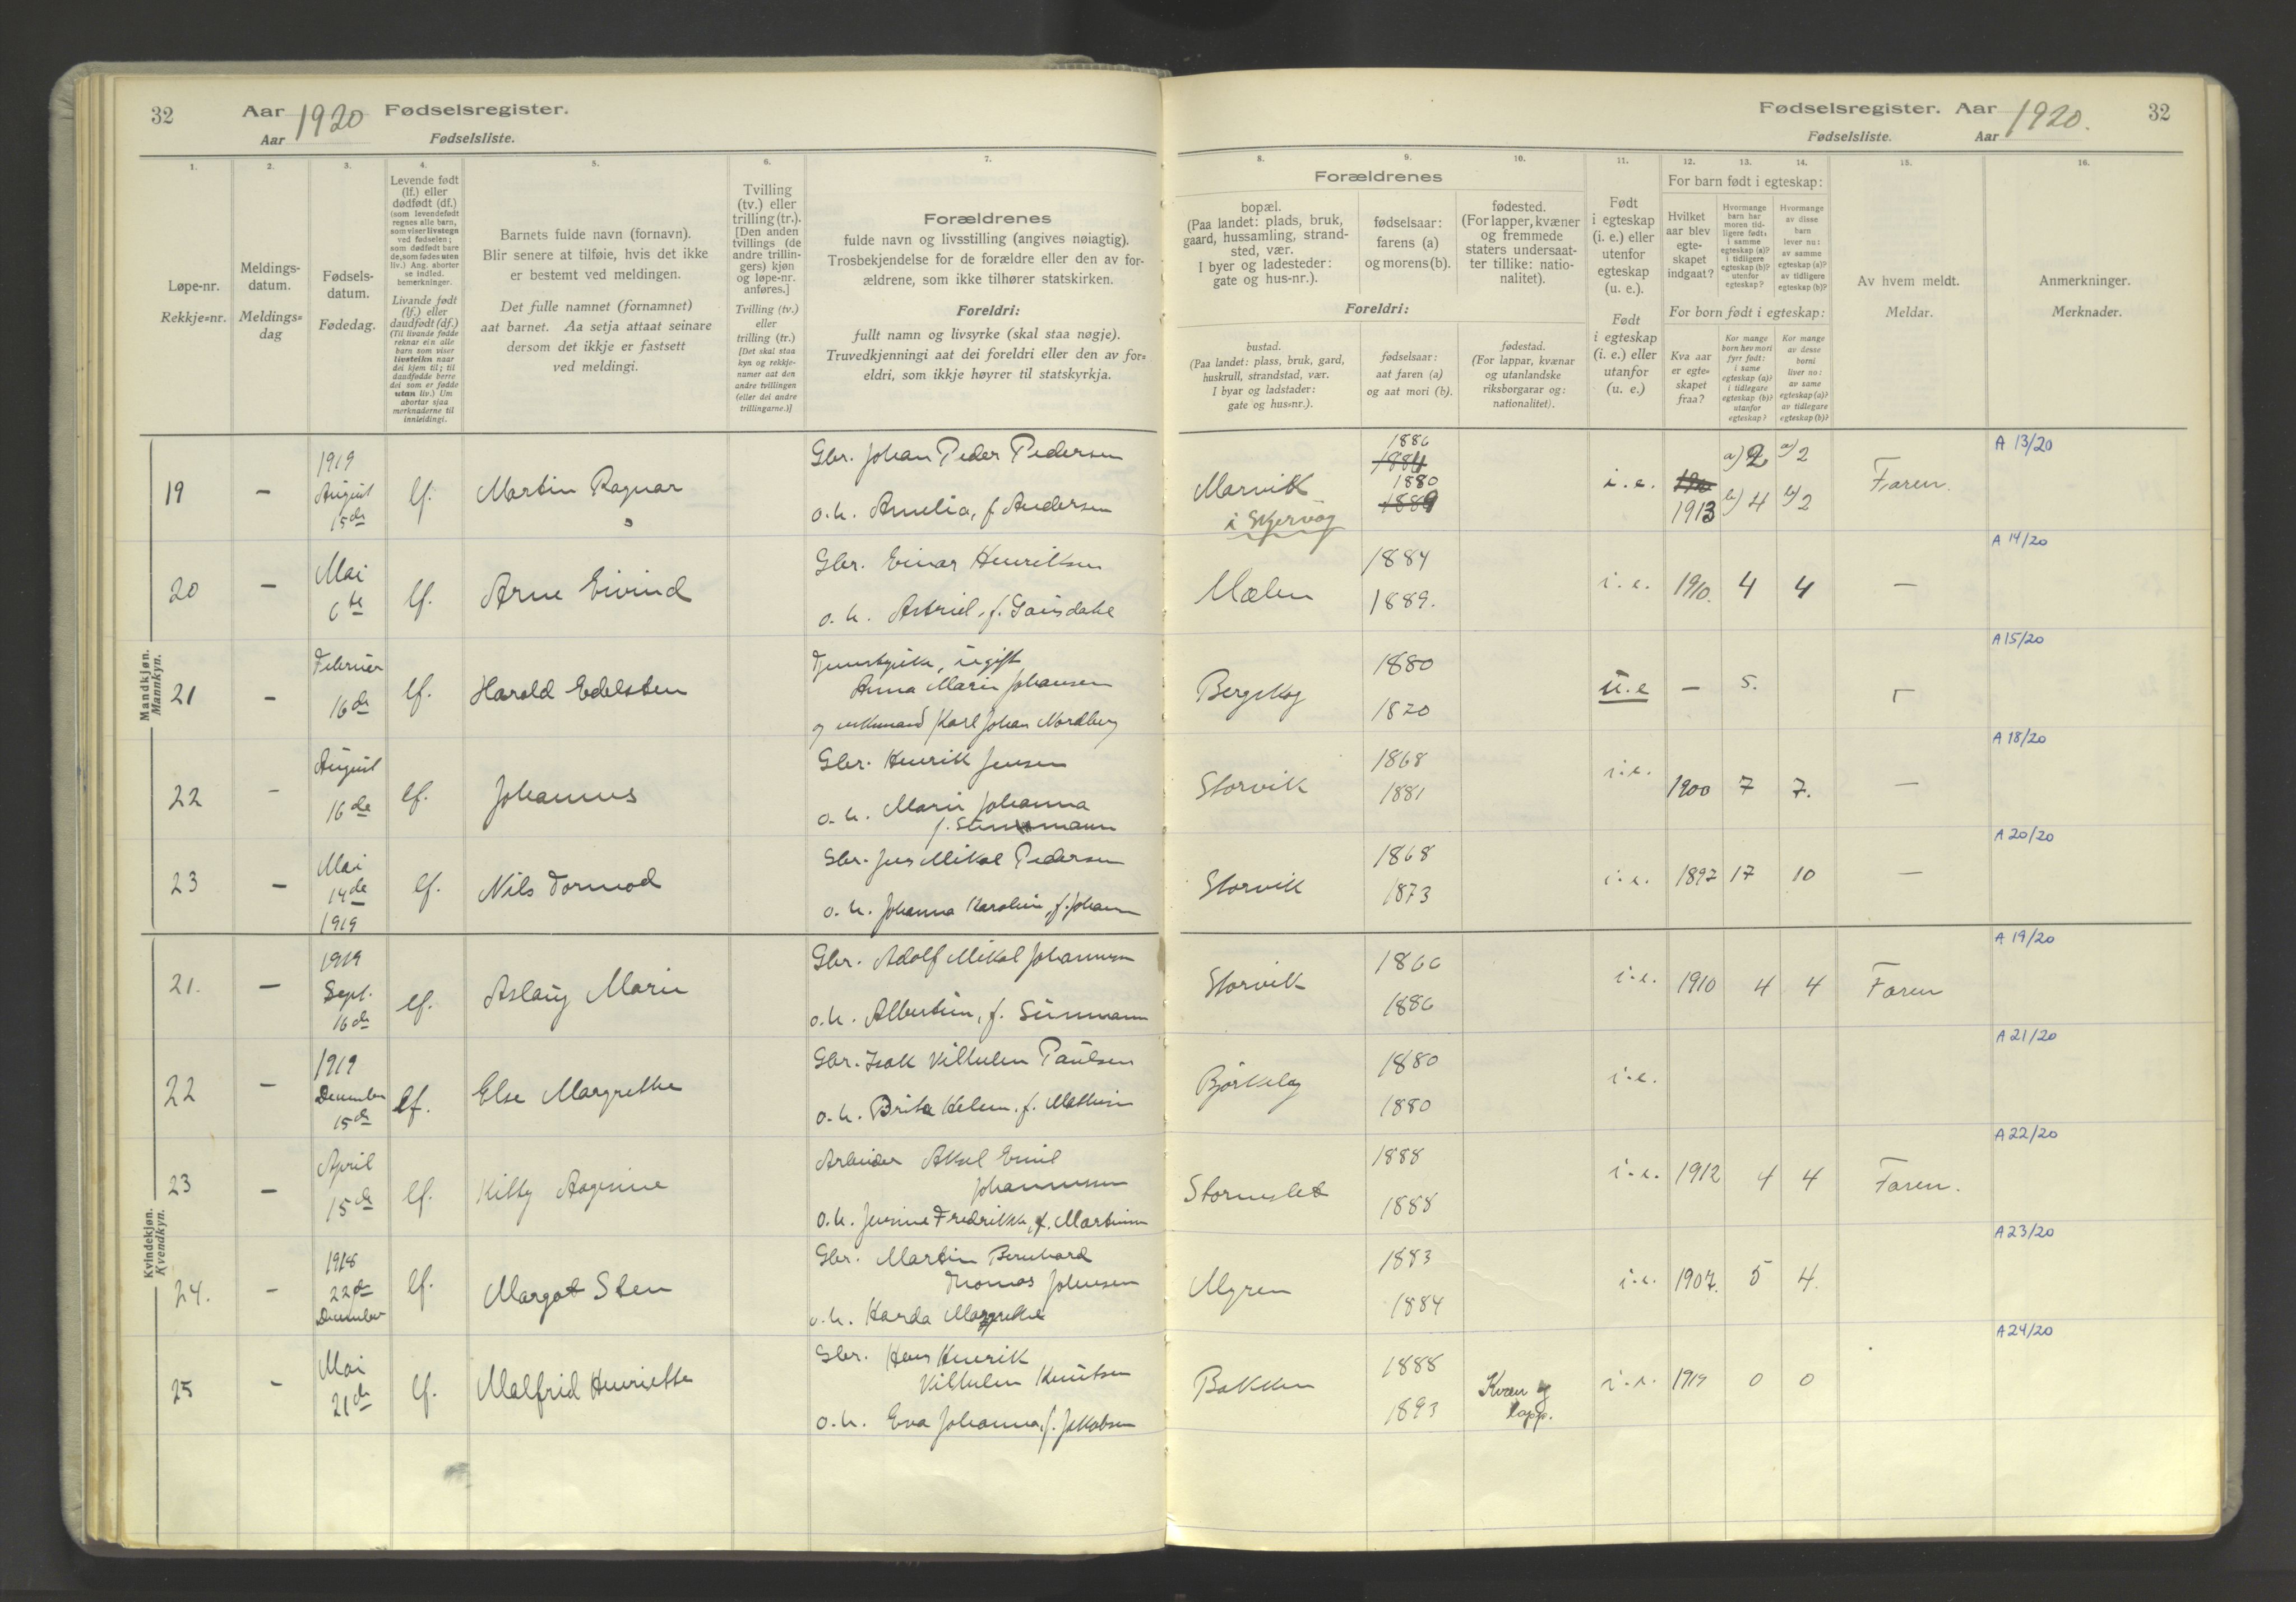 32 Aar 1920 Fødselsregister.
Aar Fødselsliste.
1. 2. 3. 4. 5. 6. 7.
Løpe-nr.
Rekkje=nr.
Meldings-
datum.
Meldings=
dag
Fødsels-
datum.
Fødedag.
Levende født
(lf.) eller
dødfødt (df.)
(som levendefødt
regnes alle barn,
som viser livstegn
ved fødselen;
som dødfødt bare
de, som fødes uten
liv.) Ang. aborter
se indled.
bemerkninger.
Livande født
(lf.) eller
daudfødt (df.)
(Til livande fødde
reknar ein alle
barn som viser
livsteikn naar
dei kjem til; til
daudfødde berre
dei som er fødde
utan liv.) Um
abortar sjaa
merknaderne til
innleidingi.
Barnets fulde navn (fornavn).
Blir senere at tilføie, hvis det ikke
er bestemt ved meldingen.
Det fulle namnet (fornamnet)
aat barnet. Aa setja attaat seinare
dersom det ikkje er fastsett
ved meldingi.
Tvilling
(tv.) eller
trilling (tr.).
[Den anden
tvillings (de
andre trillin-
gers) kjøn
og løpe-nr.
anføres.]
Tvilling (tv.)
eller
trilling (tr.)
[Det skal staa
kyn og rekkje-
numer aat den
andre tvillingen
(eller dei andre
trillingarne.)]
Forældrenes
fulde navn og livsstilling (angives nøiagtig).
Trosbekjendelse for de forældre eller den av for-
ældrene, som ikke tilhører statskirken.
Foreldri:
fullt namn og livsyrke (skal staa nøgje).
Truvedkjenningi aat dei foreldri eller den av for=
eldri, som ikkje høyrer til statskyrkja.
Mandkjøn.
Mannkyn.
19 — 1919 August 15de lf. Martin Ragnar
Gbr. Johan Peder Pedersen
o. h. Amelia, f. Andersen
20 — Mai 6te lf. Arne Eivind
Gbr. Einar Henriksen
o. h. Astrid, f.
21 — Februar 16de lf. Harold Edelsten
ugift
Anna Marie Johansen
og Karl Johan Nordberg
22 — August 16de lf. Johannes
Gbr. Henrik Jensen
o. h. Marie Johanna
f.
23 — Mai 14de 1919 lf. Nils Tormod
Gbr. Jens Mikal Pedersen
o. h. Johanna Karoline, f. Johans
Kvindekjøn.
Kvendkyn.
21. — 1919 Sept. 16de lf. Aslaug Marie
Gbr. Adolf Mikal Johannesen
o. h. Albertine, f. Simmann
22 — 1919 December 15de lf. Else Margrethe
Gbr. Isak Vilhelm Paulsen
o. h. Brita Helene, f. Mathisen
23 — April 15de lf. Kitty Aagine
Arbeider Aksel Emil
Johannesen
o. h. Jensine Fredrikke, f. Martinsen
24. — 1918 22de December lf. Margot Sten
Gbr. Martin Bernhard
Thomas Johnsen
o. h. Harda Margrethe
25 — Mai 21de lf. Malfrid Henriette
Gbr. Hans Henrik
Vilhelm Knutsen
o. h. Eva Johanna, f. Jakobsen
Fødselsregister. Aar 1920. 32
Fødselsliste. Aar
8. 9. 10. 11. 12. 13. 14. 15. 16.
Forældrenes
bopæl.
(Paa landet: plads, bruk,
gaard, hussamling, strand-
sted, vær.
I byer og ladesteder:
gate og hus-nr.).
fødselsaar:
farens (a)
og morens (b).
fødested.
(For lapper, kvæner
og fremmede
staters undersaat-
ter tillike: natio-
nalitet).
Foreldri:
bustad.
(Paa landet: plass, bruk, gard,
huskrull, strandstad, vær.
I byar og ladstader:
gate og hus=nr.).
fødselsaar:
aat faren (a)
og aat mori (b).
fødestad.
(For lappar, kvænar
og utanlandske
riksborgarar og:
nationalitet).
Født
i egteskap
(i. e.) eller
utenfor
egteskap
(u. e.).
Født
i egteskap
(i. e.) eller
utanfor
egteskap
(u. e.)
For barn født i egteskap:
Hvilket
aar blev
egte-
skapet
indgaat?
Hvormange
barn har
moren tid-
ligere født:
i samme
egteskap (a)?
i tidligere
egteskap (b)?
utenfor
egteskap?
Hvormange
av disse
barn
lever nu:
av samme
egteskap (a)?
av tidligere
egteskap (b)?
For born født i egteskap:
Kva aar
er egte=
skapet
fraa?
Kor mange
born hev mori
fyrr født:
i same
egteskap (a)?
i tidlegare
egteskap (b)?
utanfor
egteskap?
Kor mange
av desse
borni
liver no:
av same
egteskap (a)?
av tidlegare
egteskap (b)?
Av hvem meldt.
Meldar.
Anmerkninger.
Merknader.
Marvik
i Skjervøy
1886
1884
1880
1889
i. e. 1913 a) 2 b) 4 a) 2 b) 2 Faren. A 13/20
Mælen 1884 1889. i. e. 1910. 4 4 — A 14/20
Bergskog 1880 1820 u. e — 5. A 15/20
Storvik 1868 1881 i. e. 1900 7 7. — A 18/20
Storvik 1868 1873 i. e. 1892 17 10 — A 20/20
Storvik 1866 1886 i. e. 1910 4 4 Faren A 19/20
Bjørkeleg 1880 1880 i. e. A 21/20
Storneslet 1888 1888 i. e. 1912 4 4 Faren. A 22/20
Myren 1883 1884 i. e. 1907. 5 4. A 23/20
Bakken 1888 1893 Kvæn og
lapp. i. e. 1919 0 0 A 24/20